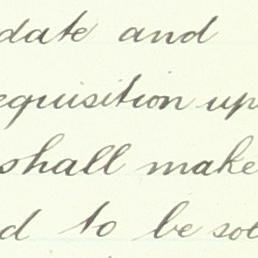 date and
equisition up
shall make
d to be so